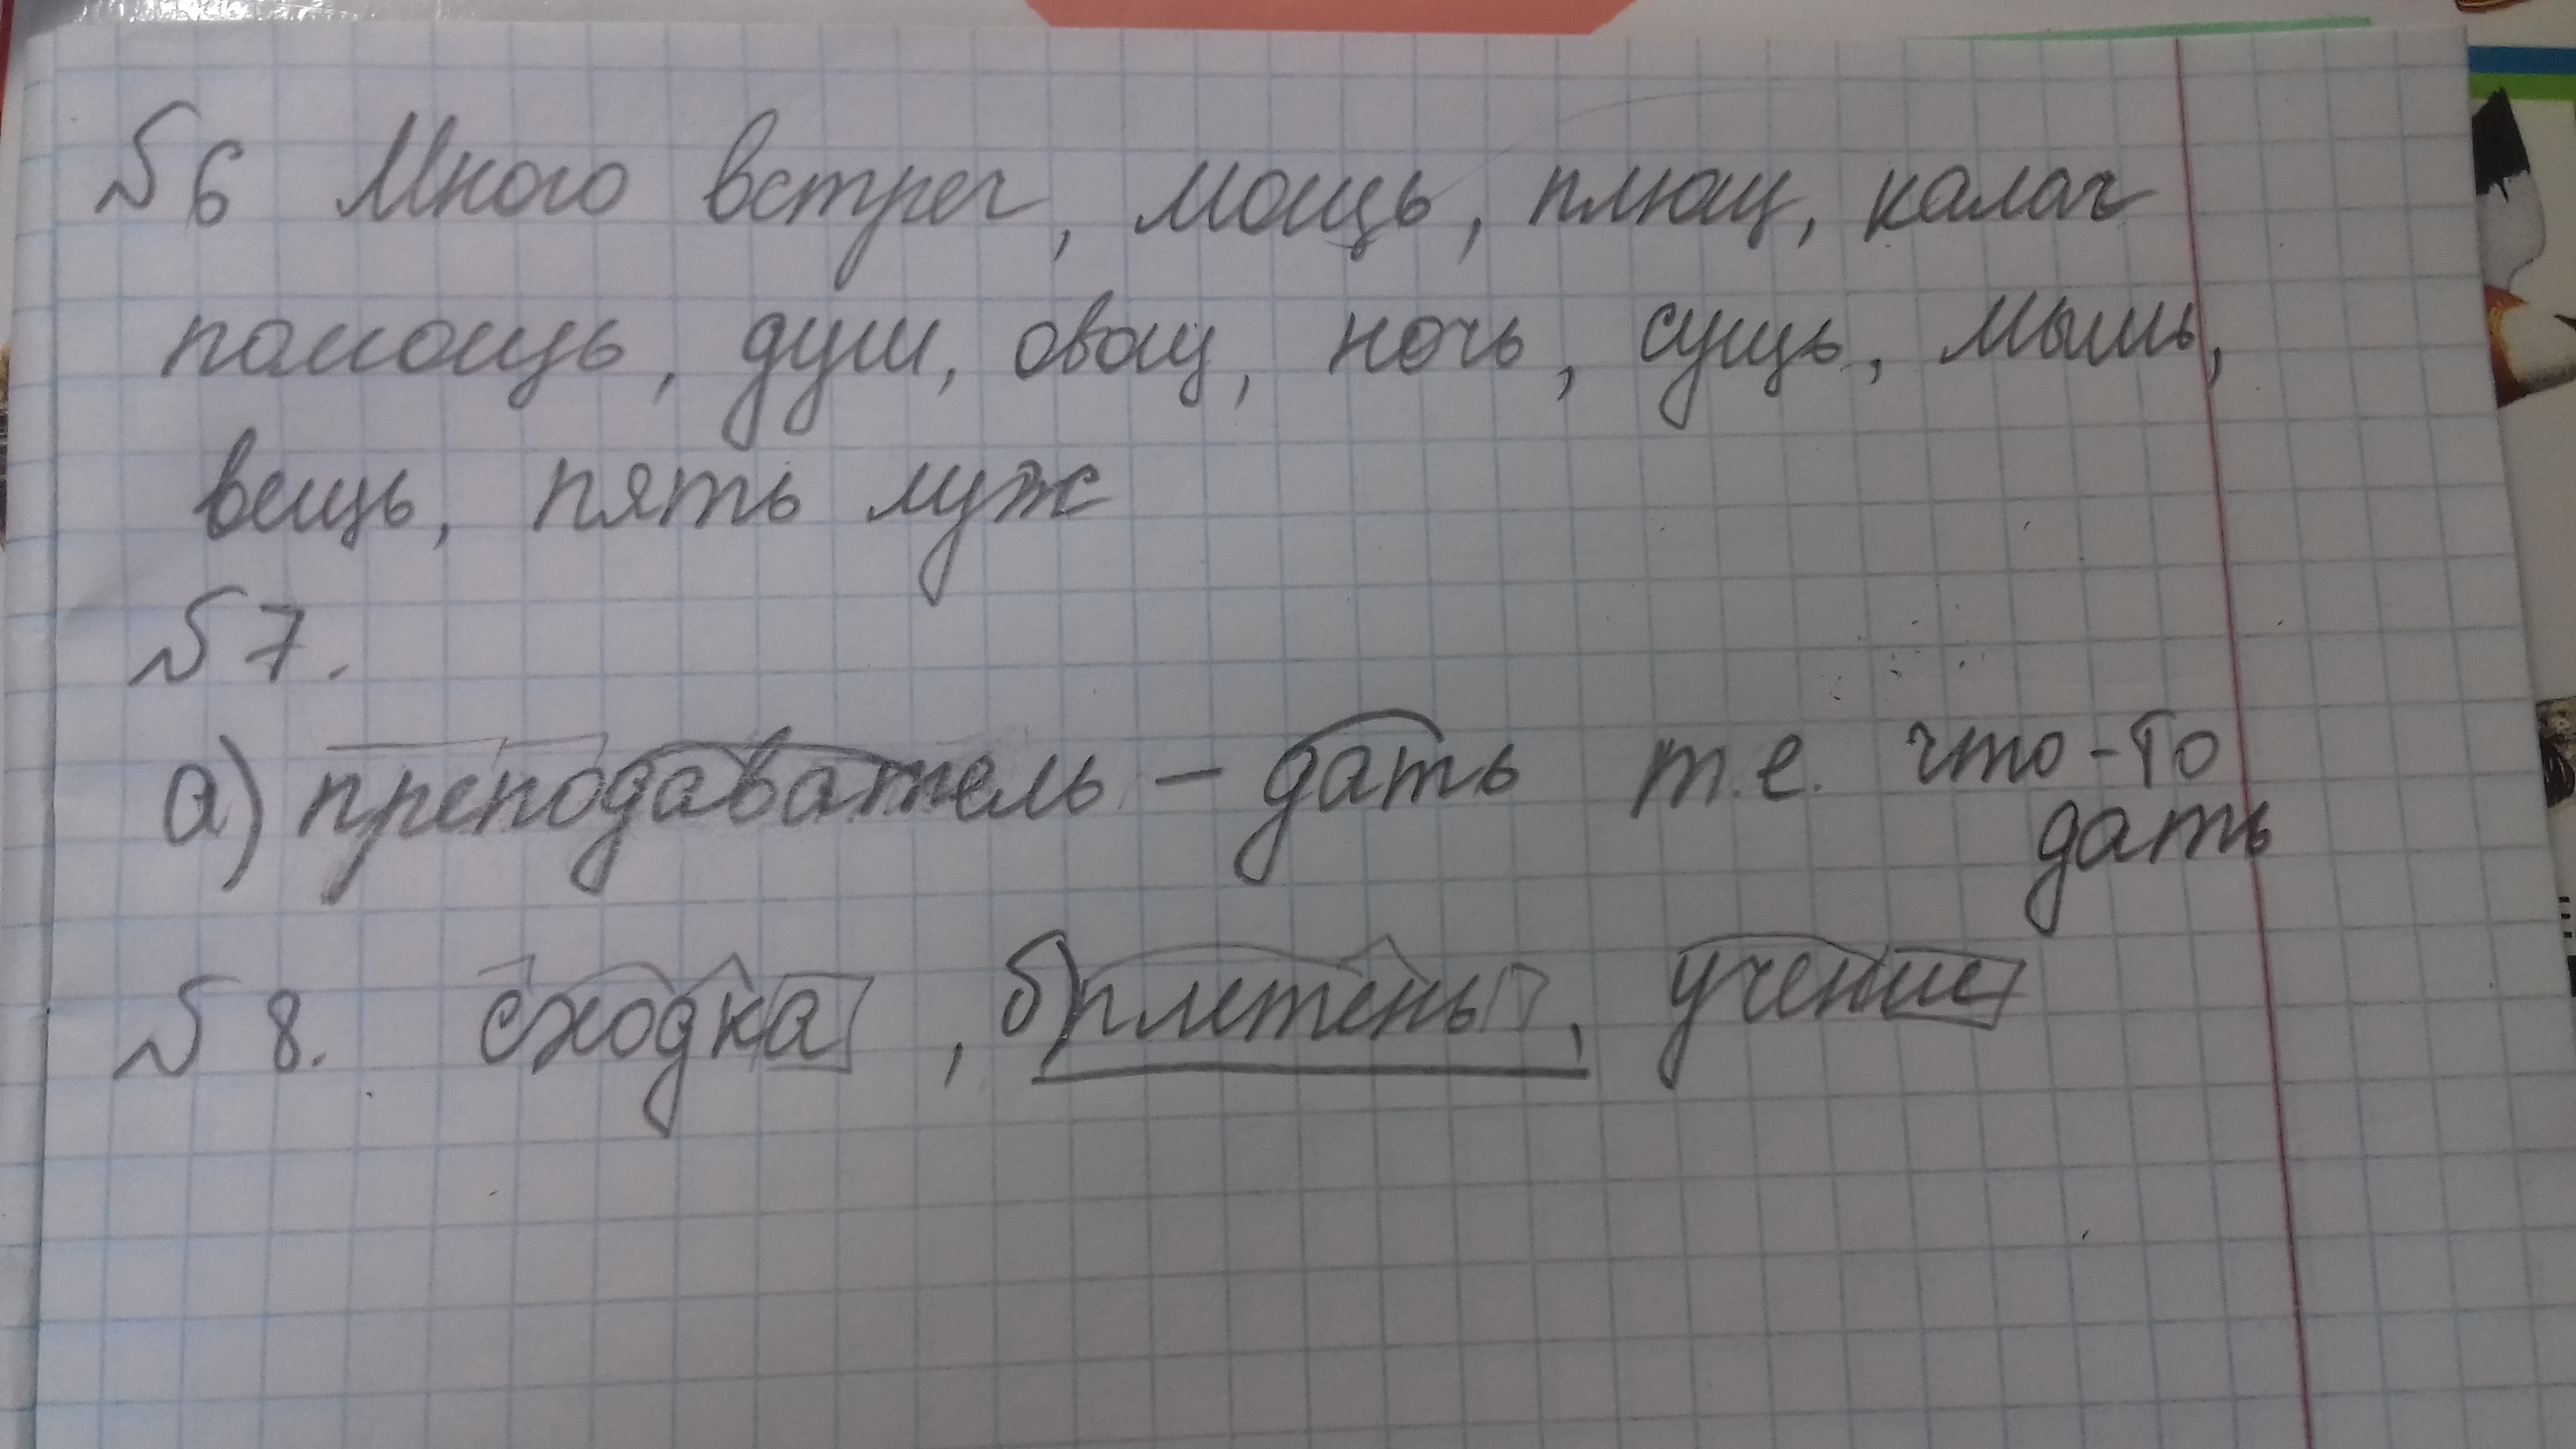 №6 Много встреч, мощь, плющ, калач
помощь, душ, овощ, ночь, сущь, мышь,
вещь, пять луж
№7.
а) преподаватель – дать т.е. что-то
дать
№8. сходка, б) плетень, учение